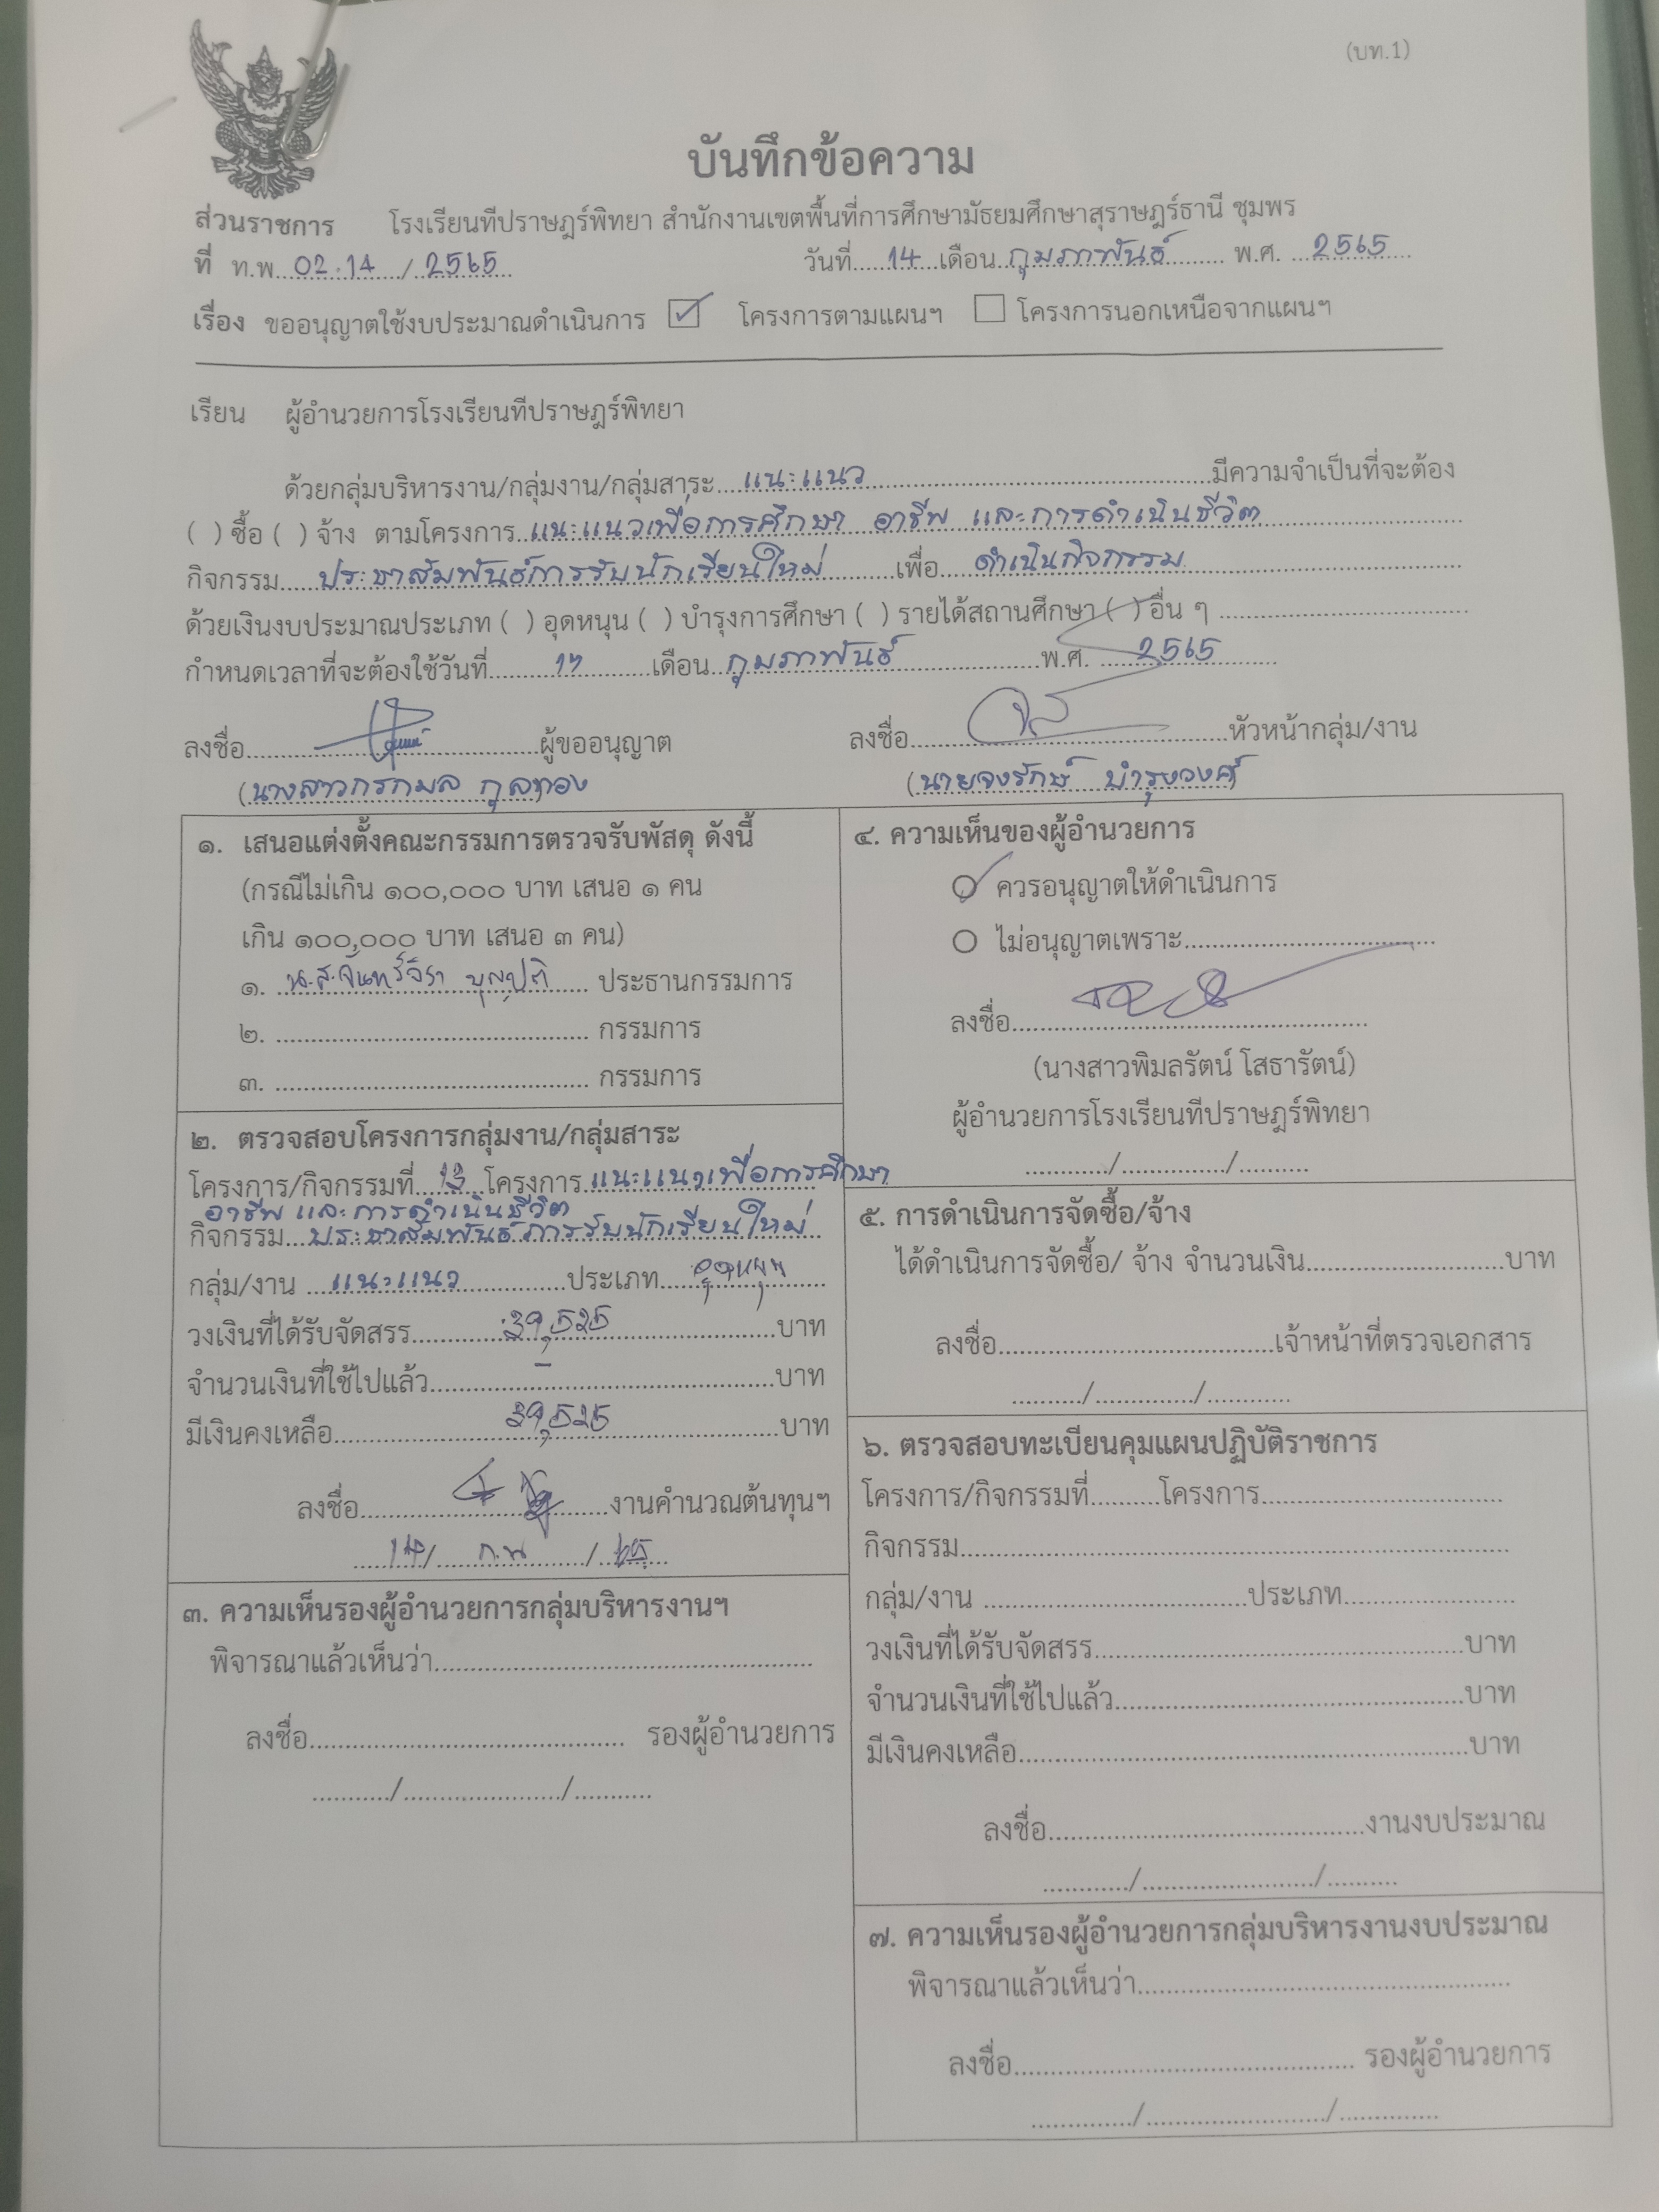 (บท.1)
บันทึกข้อความ
ส่วนราชการ โรงเรียนทีปราษฎร์พิทยา สำนักงานเขตพื้นที่การศึกษามัธยมศึกษาสุราษฎร์ธานี ชุมพร
ที่ ท.พ. 02.14 / 2565 วันที่ 14 เดือน กุมภาพันธ์ พ.ศ. 2565
เรื่อง ขออนุญาตใช้งบประมาณดำเนินการ ☑ โครงการตามแผนฯ ☐ โครงการนอกเหนือจากแผนฯ
เรียน ผู้อำนวยการโรงเรียนทีปราษฎร์พิทยา
ด้วยกลุ่มบริหารงาน/กลุ่มงาน/กลุ่มสาระ แนะแนว มีความจำเป็นที่จะต้อง
( ) ซื้อ ( ) จ้าง ตามโครงการ แนะแนวเพื่อการศึกษา อาชีพ และการดำเนินชีวิต
กิจกรรม ประชาสัมพันธ์การรับนักเรียนใหม่ เพื่อ ดำเนินกิจกรรม
ด้วยเงินงบประมาณประเภท ( ) อุดหนุน ( ) บำรุงการศึกษา ( ) รายได้สถานศึกษา ( ) อื่น ๆ
กำหนดเวลาที่จะต้องใช้วันที่ 17 เดือน กุมภาพันธ์ พ.ศ. 2565
ลงชื่อ ผู้ขออนุญาต ลงชื่อ หัวหน้ากลุ่ม/งาน
(นางสาวกรกมล กูลทอง (นายจงรักษ์ บำรุงวงศ์)
๑. เสนอแต่งตั้งคณะกรรมการตรวจรับพัสดุ ดังนี้
(กรณีไม่เกิน ๑๐๐,๐๐๐ บาท เสนอ ๑ คน
เกิน ๑๐๐,๐๐๐ บาท เสนอ ๓ คน)
๑. น.ส.จันทร์จิรา ประธานกรรมการ
๒. กรรมการ
๓. กรรมการ
๒. ตรวจสอบโครงการกลุ่มงาน/กลุ่มสาระ
โครงการ/กิจกรรมที่ 13 โครงการ แนะแนวเพื่อการศึกษา
อาชีพ และการดำเนินชีวิต
กิจกรรม ประชาสัมพันธ์การรับนักเรียนใหม่
กลุ่ม/งาน แนะแนว ประเภท อุดหนุน
วงเงินที่ได้รับจัดสรร 39,525 บาท
จำนวนเงินที่ใช้ไปแล้ว - บาท
มีเงินคงเหลือ 39,525 บาท
ลงชื่อ งานคำนวณต้นทุนฯ
14/ ก.พ /65
๓. ความเห็นรองผู้อำนวยการกลุ่มบริหารงานฯ
พิจารณาแล้วเห็นว่า
ลงชื่อ รองผู้อำนวยการ
๔. ความเห็นของผู้อำนวยการ
ควรอนุญาตให้ดำเนินการ
ไม่อนุญาตเพราะ
ลงชื่อ
(นางสาวพิมลรัตน์ โสธารัตน์)
ผู้อำนวยการโรงเรียนทีปราษฎร์พิทยา
๕. การดำเนินการจัดซื้อ/จ้าง
ได้ดำเนินการจัดซื้อ/ จ้าง จำนวนเงิน บาท
ลงชื่อ เจ้าหน้าที่ตรวจเอกสาร
๖. ตรวจสอบทะเบียนคุมแผนปฏิบัติราชการ
โครงการ/กิจกรรมที่ โครงการ
กิจกรรม
กลุ่ม/งาน ประเภท
วงเงินที่ได้รับจัดสรร บาท
จำนวนเงินที่ใช้ไปแล้ว บาท
มีเงินคงเหลือ บาท
ลงชื่อ งานงบประมาณ
๗. ความเห็นรองผู้อำนวยการกลุ่มบริหารงานงบประมาณ
พิจารณาแล้วเห็นว่า
ลงชื่อ รองผู้อำนวยการ